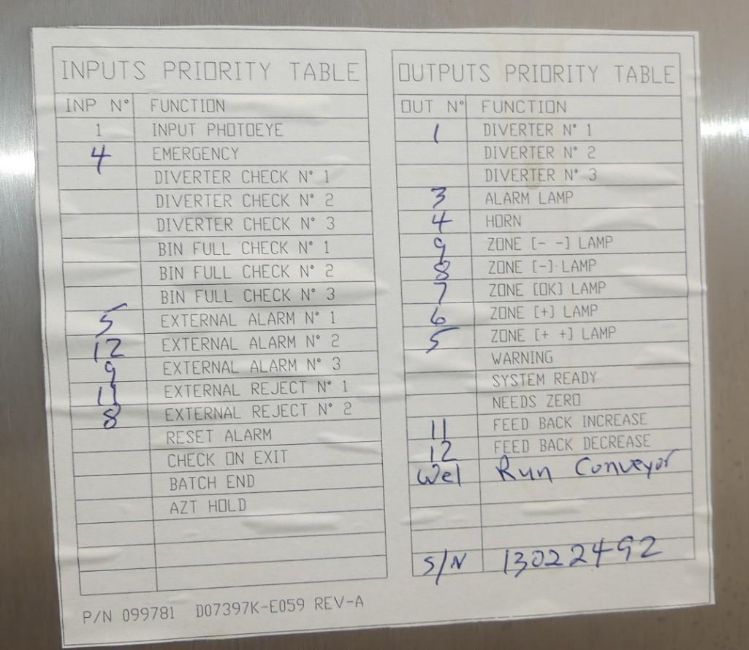 INPUTS PRIORITY TABLE
INP N° FUNCTION
1 INPUT PHOTOEYE
4 EMERGENCY
DIVERTER CHECK N° 1
DIVERTER CHECK N° 2
DIVERTER CHECK N° 3
BIN FULL CHECK N° 1
BIN FULL CHECK N° 2
BIN FULL CHECK N° 3
5 EXTERNAL ALARM N° 1
12 EXTERNAL ALARM N° 2
9 EXTERNAL ALARM N° 3
11 EXTERNAL REJECT N° 1
8 EXTERNAL REJECT N° 2
RESET ALARM
CHECK ON EXIT
BATCH END
AZT HOLD
OUTPUTS PRIORITY TABLE
OUT N° FUNCTION
1 DIVERTER N° 1
DIVERTER N° 2
DIVERTER N° 3
3 ALARM LAMP
4 HORN
9 ZONE [- -] LAMP
8 ZONE [-] LAMP
7 ZONE [OK] LAMP
6 ZONE [+] LAMP
5 ZONE [+ +] LAMP
WARNING
SYSTEM READY
NEEDS ZERO
11 FEED BACK INCREASE
12 FEED BACK DECREASE
Wel Run Conveyor
S/N 13022492
P/N 099781 D07397K-E059 REV-A